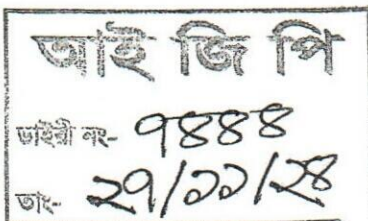 আই জি পি
ডাইরী নং- ৭৪৪৪
তাং- ২৭/১১/২৪